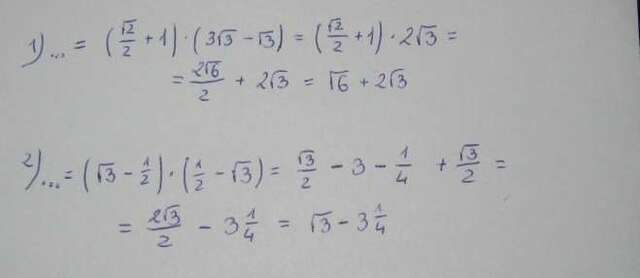 1) ... = (√2/2 + 1) · (3√3 − √3) = (√2/2 + 1) · 2√3 =
= 2√6/2 + 2√3 = √6 + 2√3
2) ... = (√3 − 1/2) · (1/2 − √3) = √3/2 − 3 − 1/4 + √3/2 =
= 2√3/2 − 3 1/4 = √3 − 3 1/4